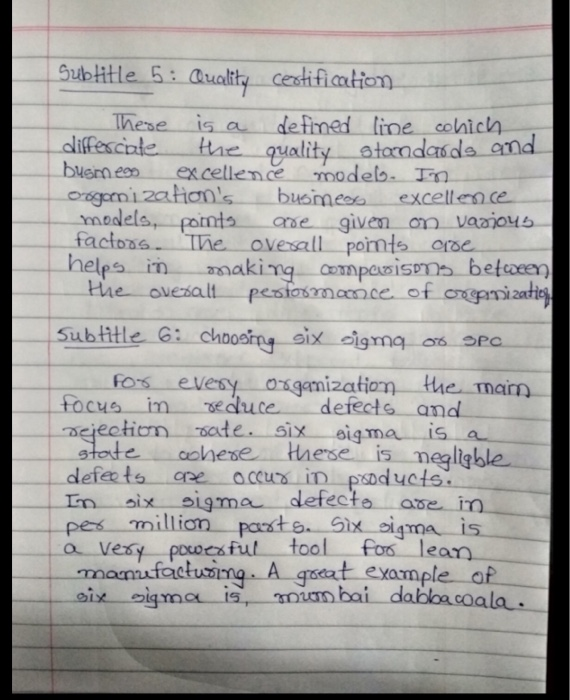 Subtitle 5: Quality certification
There is a defined line which
differciate the quality standards and
business excellence models. In
organization's business excellence
models, points are given on various
factors. The overall points are
helps in making comparisons between
the overall performance of organization
Subtitle 6: choosing six sigma or SPC
For every organization the main
focus in reduce defects and
rejection rate. six sigma is a
state where there is negligble
defects are occur in products.
In six sigma defects are in
per million parts. Six sigma is
a very powerful tool for lean
manufacturing. A great example of
six sigma is, mumbai dabbawala.